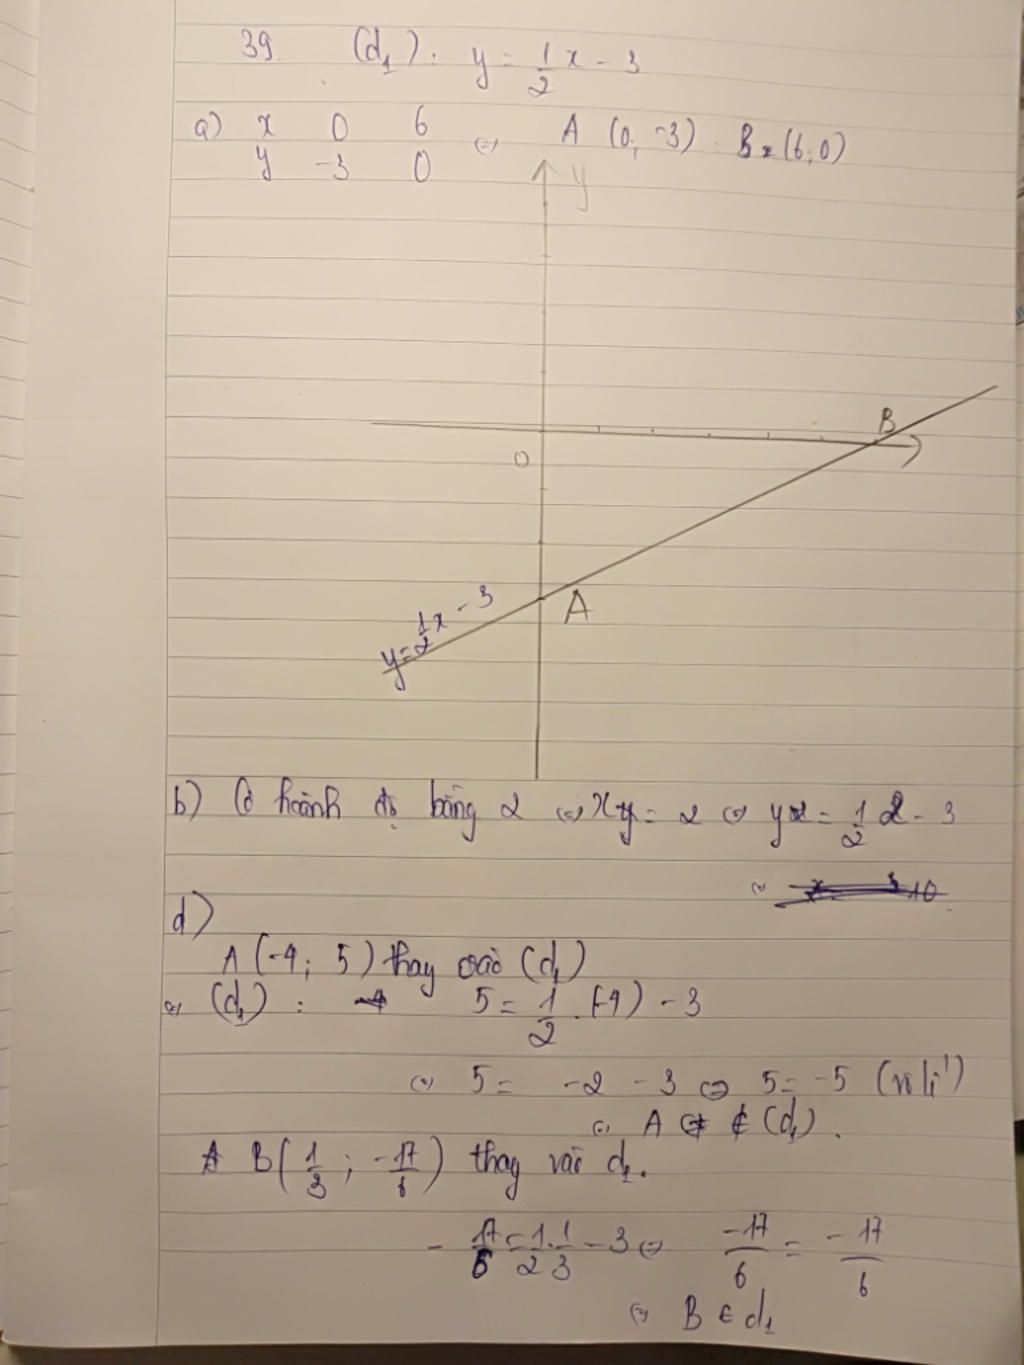 39. (d₁): y = 1/2 x - 3
a) x 0 6 ⇔ A (0; -3) . B = (6; 0)
y -3 0
y
B
O
A
y = 1/2 x - 3
b) Có hoành độ bằng 2 ⇔ x = 2 ⇔ y = 1/2 2 - 3
⇔
d)
A (-4; 5) thay vào (d₁)
⇔ (d₁) : 5 = 1/2 . (-4) - 3
⇔ 5 = -2 - 3 ⇔ 5 = -5 (vô lí)
⇔ A ∉ (d₁).
B (1/3 ; -17/6) thay vào d₁.
- 17/6 = 1/2 . 1/3 - 3 ⇔ -17/6 = -17/6
⇔ B ∈ d₁